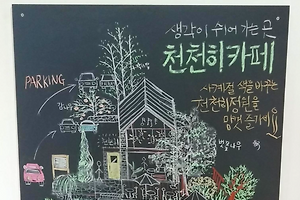 생각이 쉬어 가는 곳
천천히카페
PARKING
사계절 색을 바꾸는
천천히정원을
맘껏 즐기세